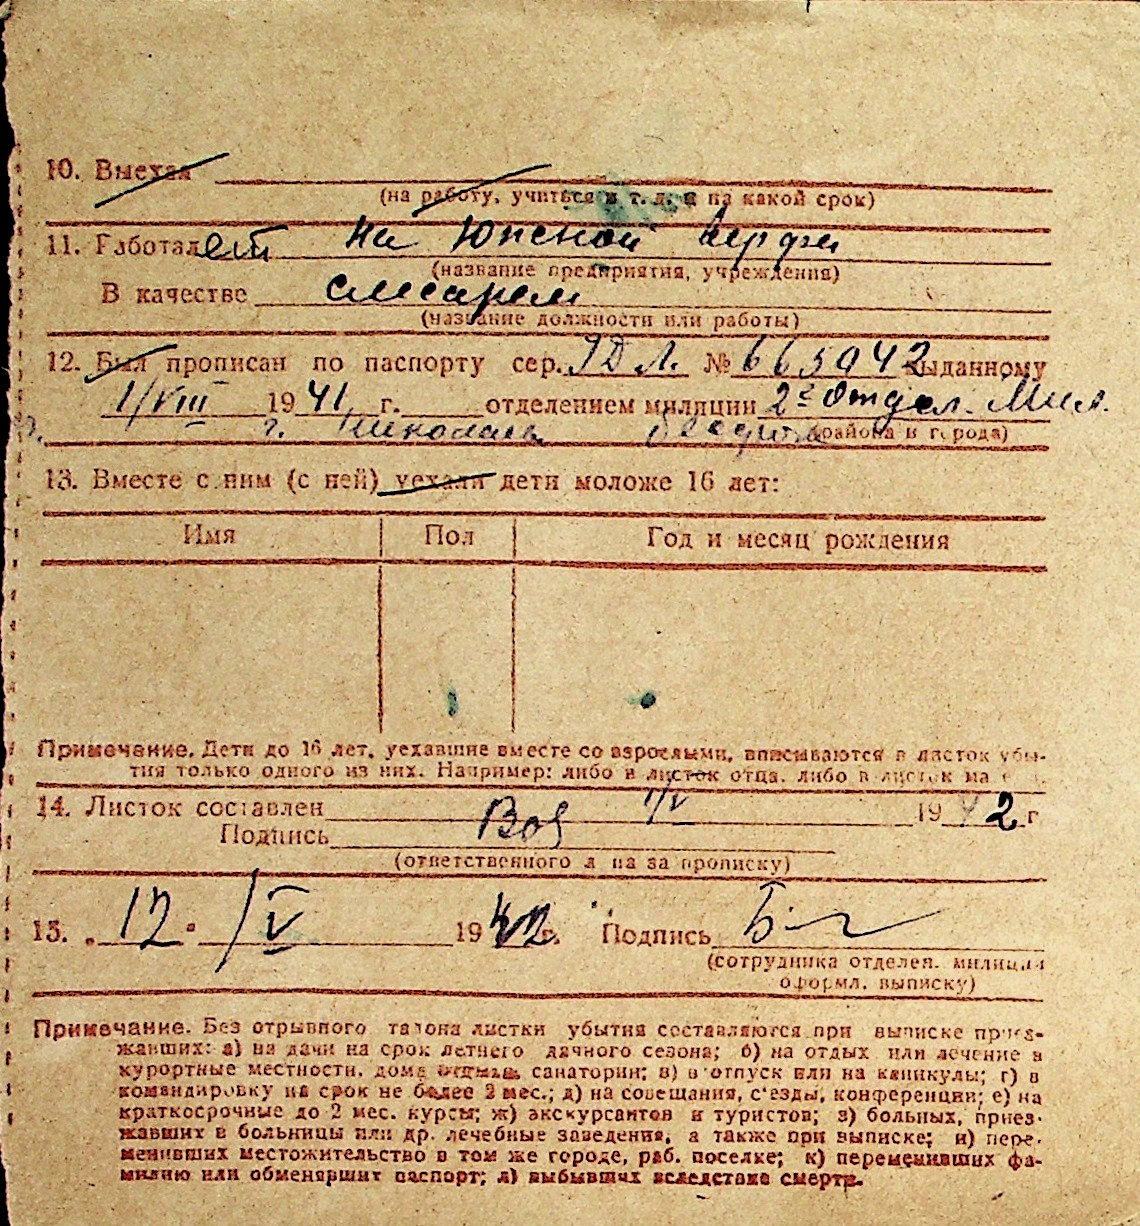 10. Выехал
(на работу, учиться и т. д. и на какой срок)
11. Работает на Южной верфи
(название предприятия, учреждения)
В качестве слесарем
(название должности или работы)
12. Был прописан по паспорту сер. № 665942 выданному
1/VIII 1941 г. отделением милиции 2е Отдел. Мил.
г. Николаев (района и города)
13. Вместе с ним (с ней) уехали дети моложе 16 лет:
Имя Пол Год и месяц рождения
Примечание. Дети до 16 лет, уехавшие вместе со взрослыми, вписываются в листок убы-
тия только одного из них. Например: либо в листок отца, либо в листок
14. Листок составлен 1/V 1942 г
Подпись
(ответственного л на за прописку)
15. „ 12 " /V 1942 г. Подпись
(сотрудника отделен. милиции
оформл. выписку)
Примечание. Без отрывного талона листки убытия составляются при выписке приез-
жавших: а) на дачи на срок летнего дачного сезона; б) на отдых или лечение в
курортные местности, дома отдыха, санатории; в) в отпуск или на каникулы; г) в
командировку на срок не более 2 мес.; д) на совещания, с'езды, конференции; е) на
краткосрочные до 2 мес. курсы; ж) экскурсантов и туристов; з) больных, приез-
жавших в больницы или др. лечебные заведения, а также при выписке; и) пере-
менивших местожительство в том же городе, раб. поселке; к) переменивших фа-
милию или обменявших паспорт; л) выбывших вследствие смерти.